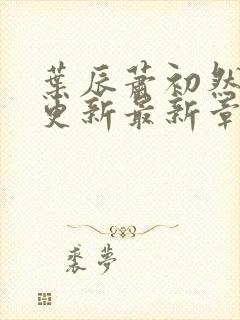 葉辰蕭初然
更新最新章
裘夢